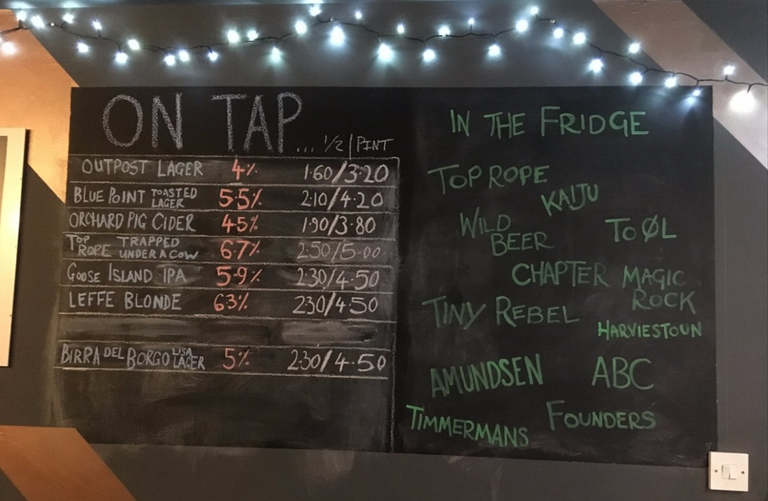 ON TAP... 1/2 | PINT
OUTPOST LAGER 4% 1·60/3·20
BLUE POINT TOASTED LAGER 5·5% 2·10/4·20
ORCHARD PIG CIDER 4·5% 1·90/3·80
TOP ROPE TRAPPED UNDER A COW 6·7% 2·50/5·00
GOOSE ISLAND IPA 5·9% 2·30/4·50
LEFFE BLONDE 6·3% 2·30/4·50
BIRRA DEL BORGO LISA LAGER 5% 2·30/4·50
IN THE FRIDGE
TOP ROPE
KAIJU
WILD BEER
TO ØL
CHAPTER
MAGIC ROCK
TINY REBEL
HARVIESTOUN
AMUNDSEN
ABC
TIMMERMANS
FOUNDERS